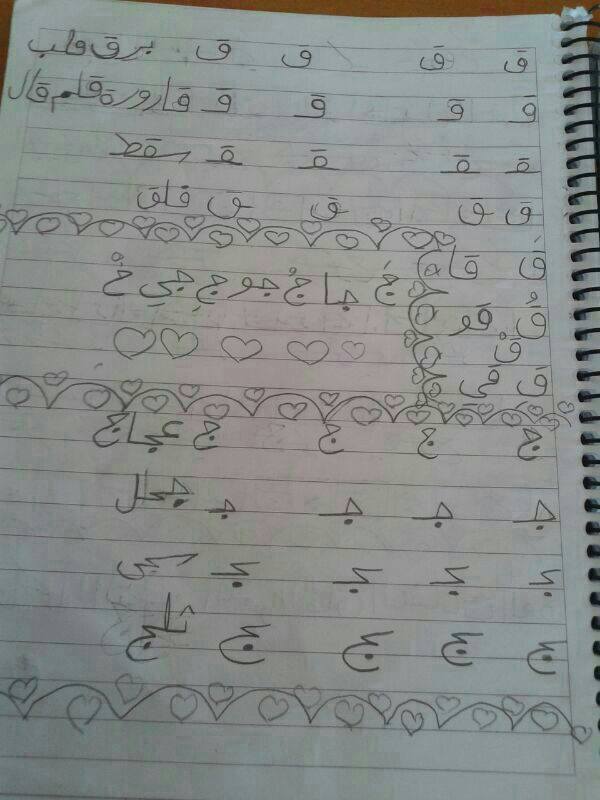 ق ق ق ق برق قلب
قـ قـ قـ قـ قارورة قلم قال
ـقـ ـقـ ـقـ ـقـ
ق ق ق ق
قَ قا
جَ جا جُ جو جِ جي جْ
قُ قو
قْ
قِ قي
ج ج ج ج
جـ جـ جـ جـ
ـجـ ـجـ ـجـ ـجـ
ـج ـج ـج ـج